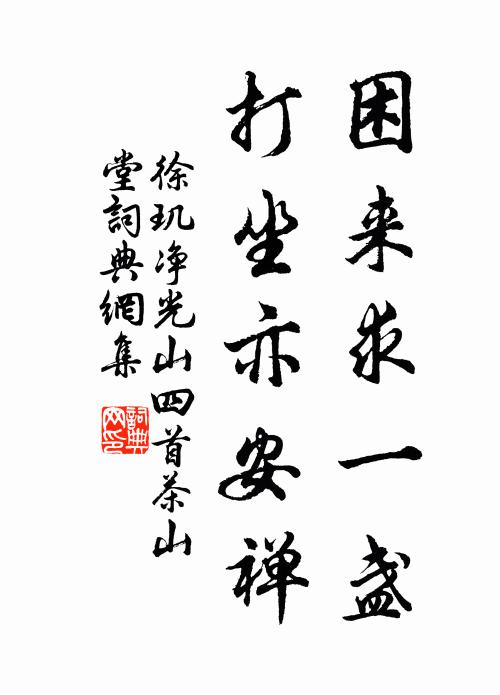 困来求一盏
打坐亦安禅
徐玑净光山四首茶山
堂詞典網集
詞典
网印